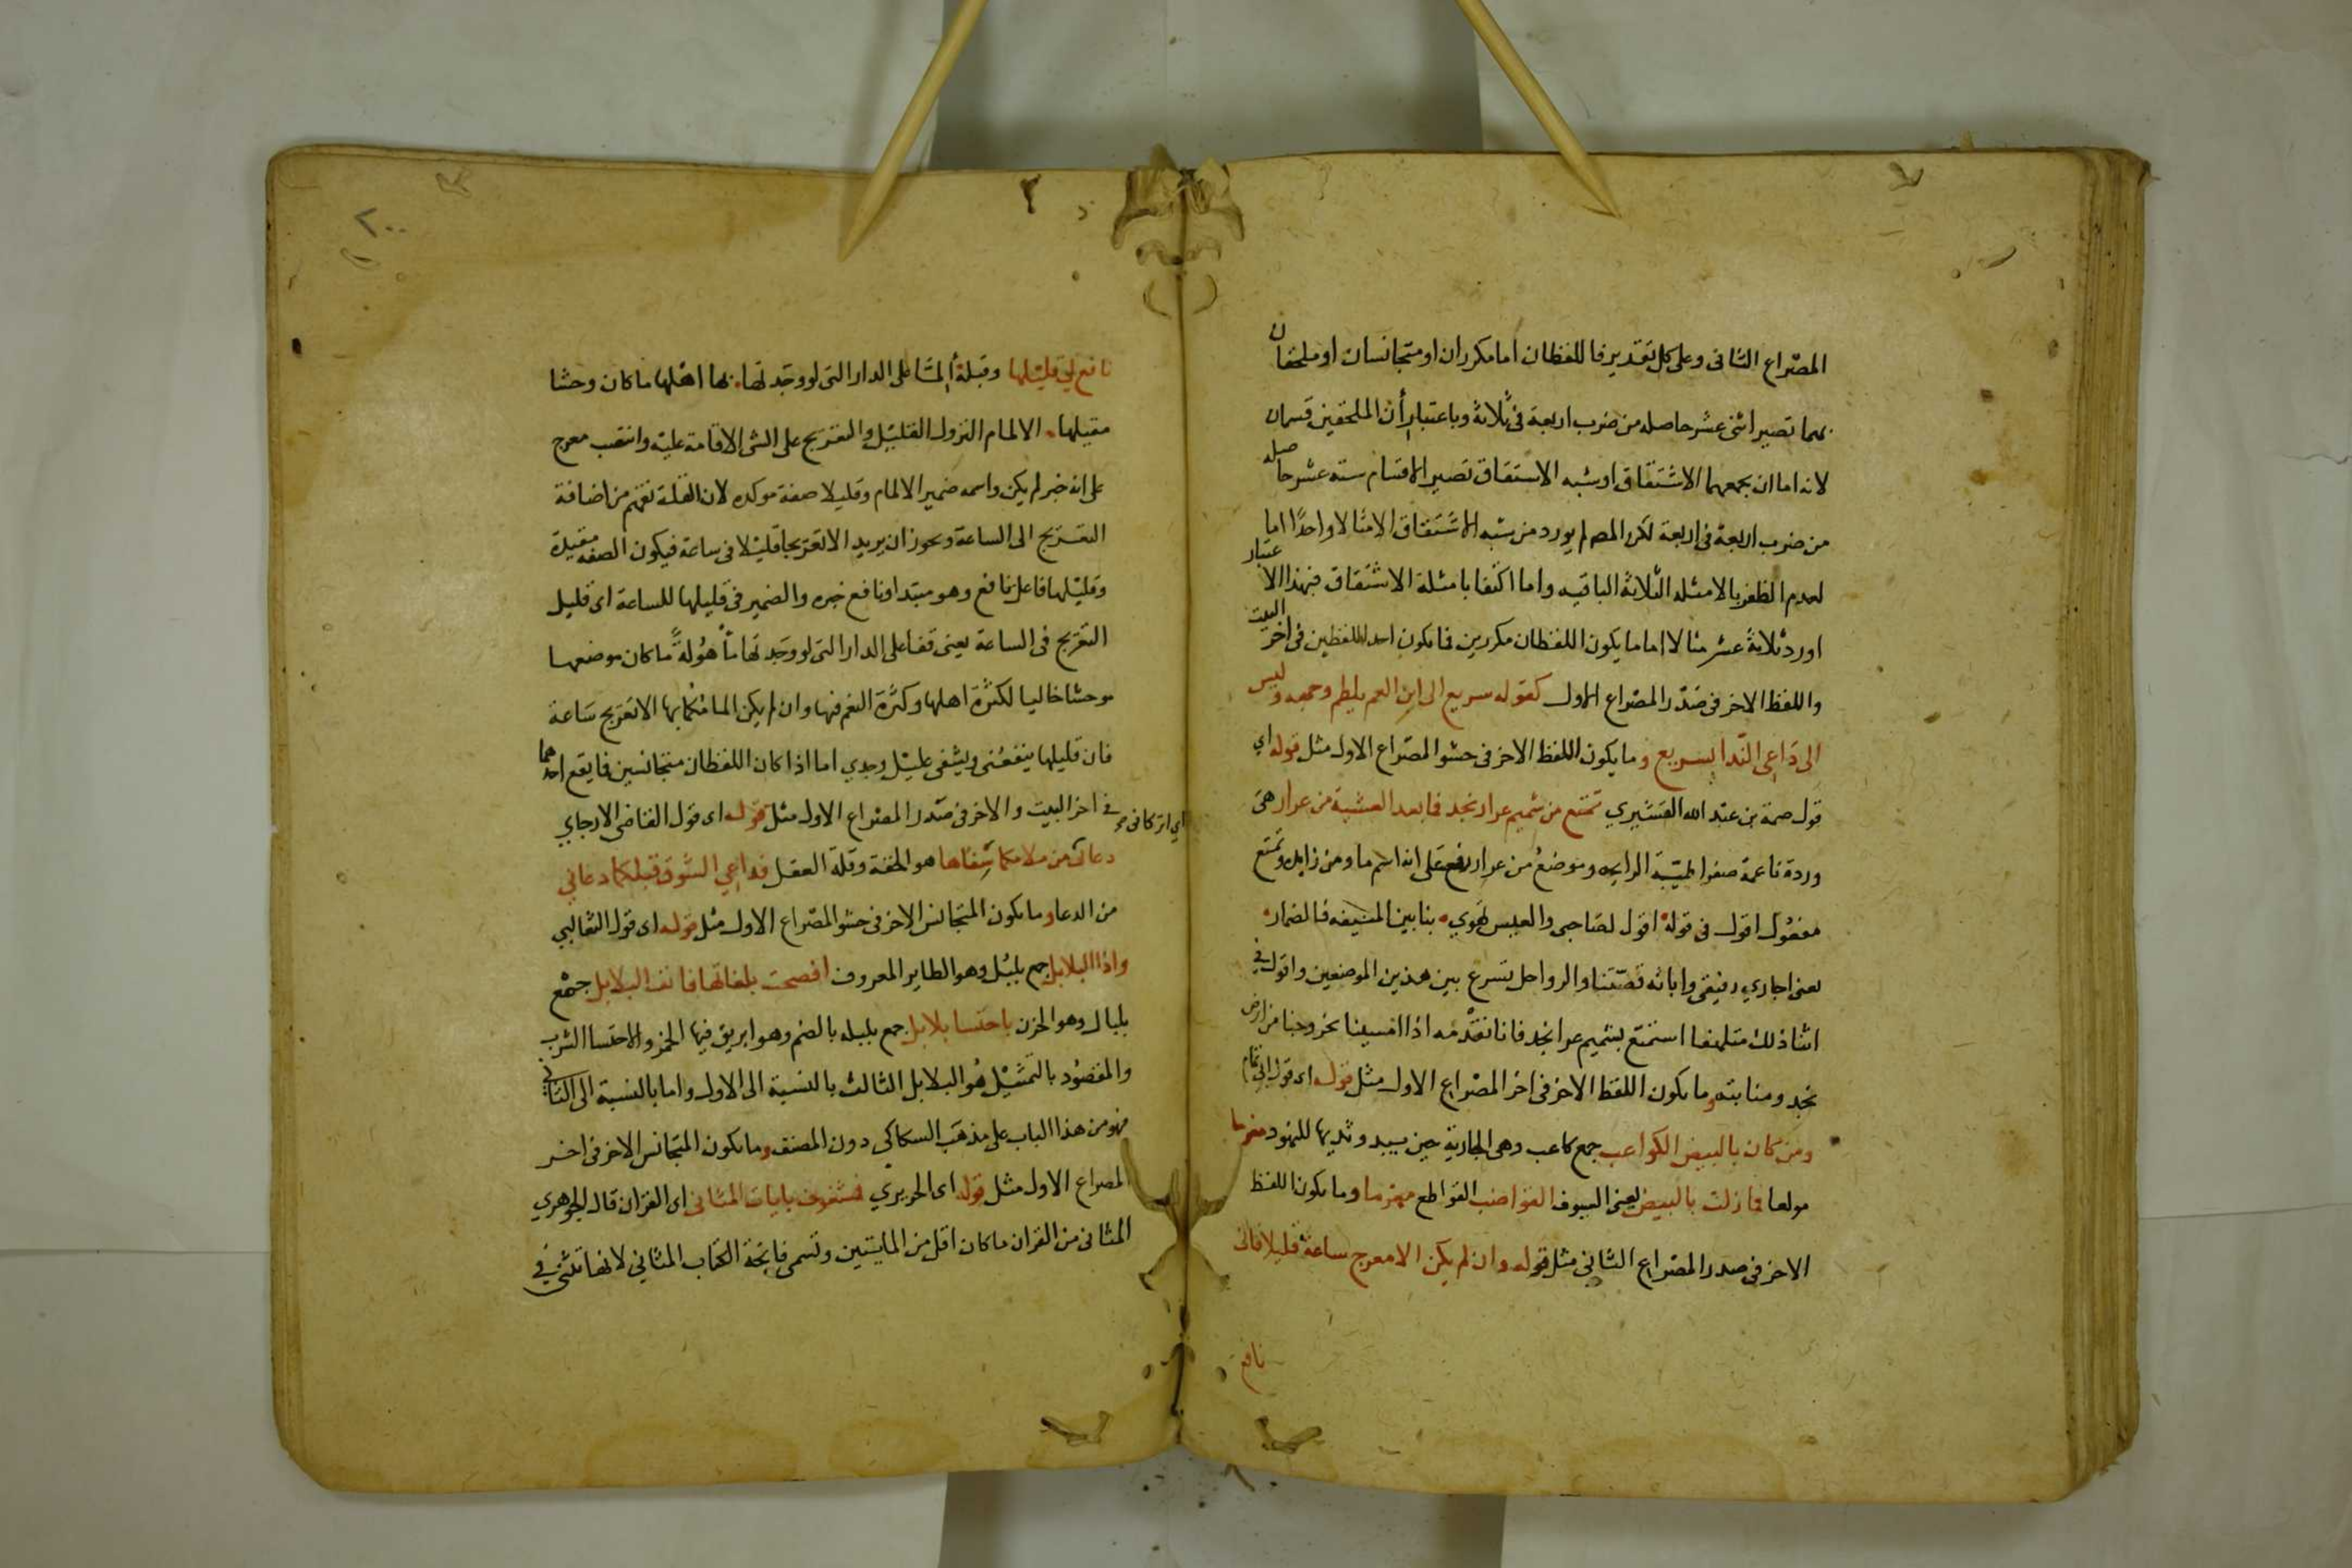 المصراع الثانى وعلى كل تقدير فا للفظان اما مكرران او متجانسان او ملحقان
بهما تصير اثنى عشر حاصله من ضرب اربعة فى ثلاثة وباعتبار أن الملحقين قسمان
لانه اما ان يجمعهما الاشتقاق او شبه الاشتقاق تصير الاقسام ستة عشر حاصله
من ضرب اربعة فى اربعة لكن المص لم يورد من شبه الاشتقاق الا مثالا واحدًا اما
لعدم الظفر بالامثله الثلاثة الباقيه واما اكتفا بامثلة الاشتقاق فبهذا الاعتبار
اورد ثلاثة عشر مثالا اما ما يكون اللفظان مكررين فما يكون احد اللفظين فى اخر البيت
واللفظ الاخر فى صدر المصراع الاول كقوله سريع الى ابن العم يلطم وجهه وليس
الى داعى الندا بسريع وما يكون اللفظ الاخر فى حشو المصراع الاول مثل قوله اي
قول صمة بن عبد الله القشيري تمتع من شميم عرار نجد فما بعد العشية من عرار هى
وردة ناعمة صفرا طيّبة الرايحه وموضع من عرار رفع على انه اسم ما ومن زايده وتمتع
مفعول اقول فى قوله اقول لصاحبى والعيس تهوي بنا بين المنيفه فالضمار
يعنى اجاري رفيقى واباثه قصّتنا والرواحل تسرع بين هذين الموضعين واقول فى
اثنا ذلك متلهفا استمتع بشميم عرار نجد فانا نقدمه اذا امسينا بخروجنا من ارض
نجد ومنابته وما يكون اللفظ الاخر فى اخر المصراع الاول مثل قوله اى قول ابى تمام
ومن كان بالبيض الكواعب جمع كاعب وهى الجارية حين يبدو ثديها للنهود مغرما
مولعا فما زلت بالبيض يعنى السيوف القواضب القواطع مغرما وما يكون اللفظ
الاخر فى صدر المصراع الثانى مثل قوله وان لم يكن الا معرج ساعة قليلا فانى
نافع
٢٠٠
نافع لي قليلها وقبله ألمّا على الدار التى لو وجدتها. بها اهلها ما كان وحشا
مقيلها. الالمام النزول القليل والتعريج على الشى الاقامة عليه وانتصب معرج
على انه خبر لم يكن واسمه ضمير الالمام وقليلا صفة موكده لان القلة تفهم من اضافة
التعريج الى الساعة ويجوز ان يريد الا تعريجا قليلا فى ساعة فيكون الصفه مقيدة
وقليلها فاعل نافع وهو مبتدا ونافع خبره والضمير فى قليلها للساعة اى قليل
التعريج فى الساعة يعنى قفا على الدار التى لو وجدتها مأهولةً ما كان موضعها
موحشا خاليا لكثرة اهلها وكثرة النعم فيها وان لم يكن المامكما بها الا تعريج ساعة
فان قليلها ينفعنى ويشفى غليل وجدي اما اذا كان اللفظان متجانسين فما يقع احدهما
فى اخر البيت والاخر فى صدر المصراع الاول مثل قوله اى قول القاضى الارجاني
اي اتركانى
دعانى من ملامكما سفاها هو الخفة وقلة العقل فداعي الشوق قبلكما دعاني
من الدعا وما يكون المتجانس الاخر فى حشو المصراع الاول مثل قوله اى قول الثعالبي
واذا البلابل جمع بلبل وهو الطاير المعروف افصحت بلغاتها فانف البلابل جمع
بلبال وهو الحزن باحتسا بلابل جمع بلبله بالضم وهو ابريق فيها الخمر والاحتسا الشرب
والمقصود بالتمثيل هو البلابل الثالث بالنسبة الى الاول واما بالنسبة الى الثانى
فهو من هذا الباب على مذهب السكاكي دون المصنف وما يكون المتجانس الاخر فى اخر
المصراع الاول مثل قوله اى الحريري فمشغوف بايات المثانى اى القران قال الجوهري
المثانى من القران ما كان اقل من المايتين وتسمى فاتحة الكتاب المثاني لانها تثنى فى